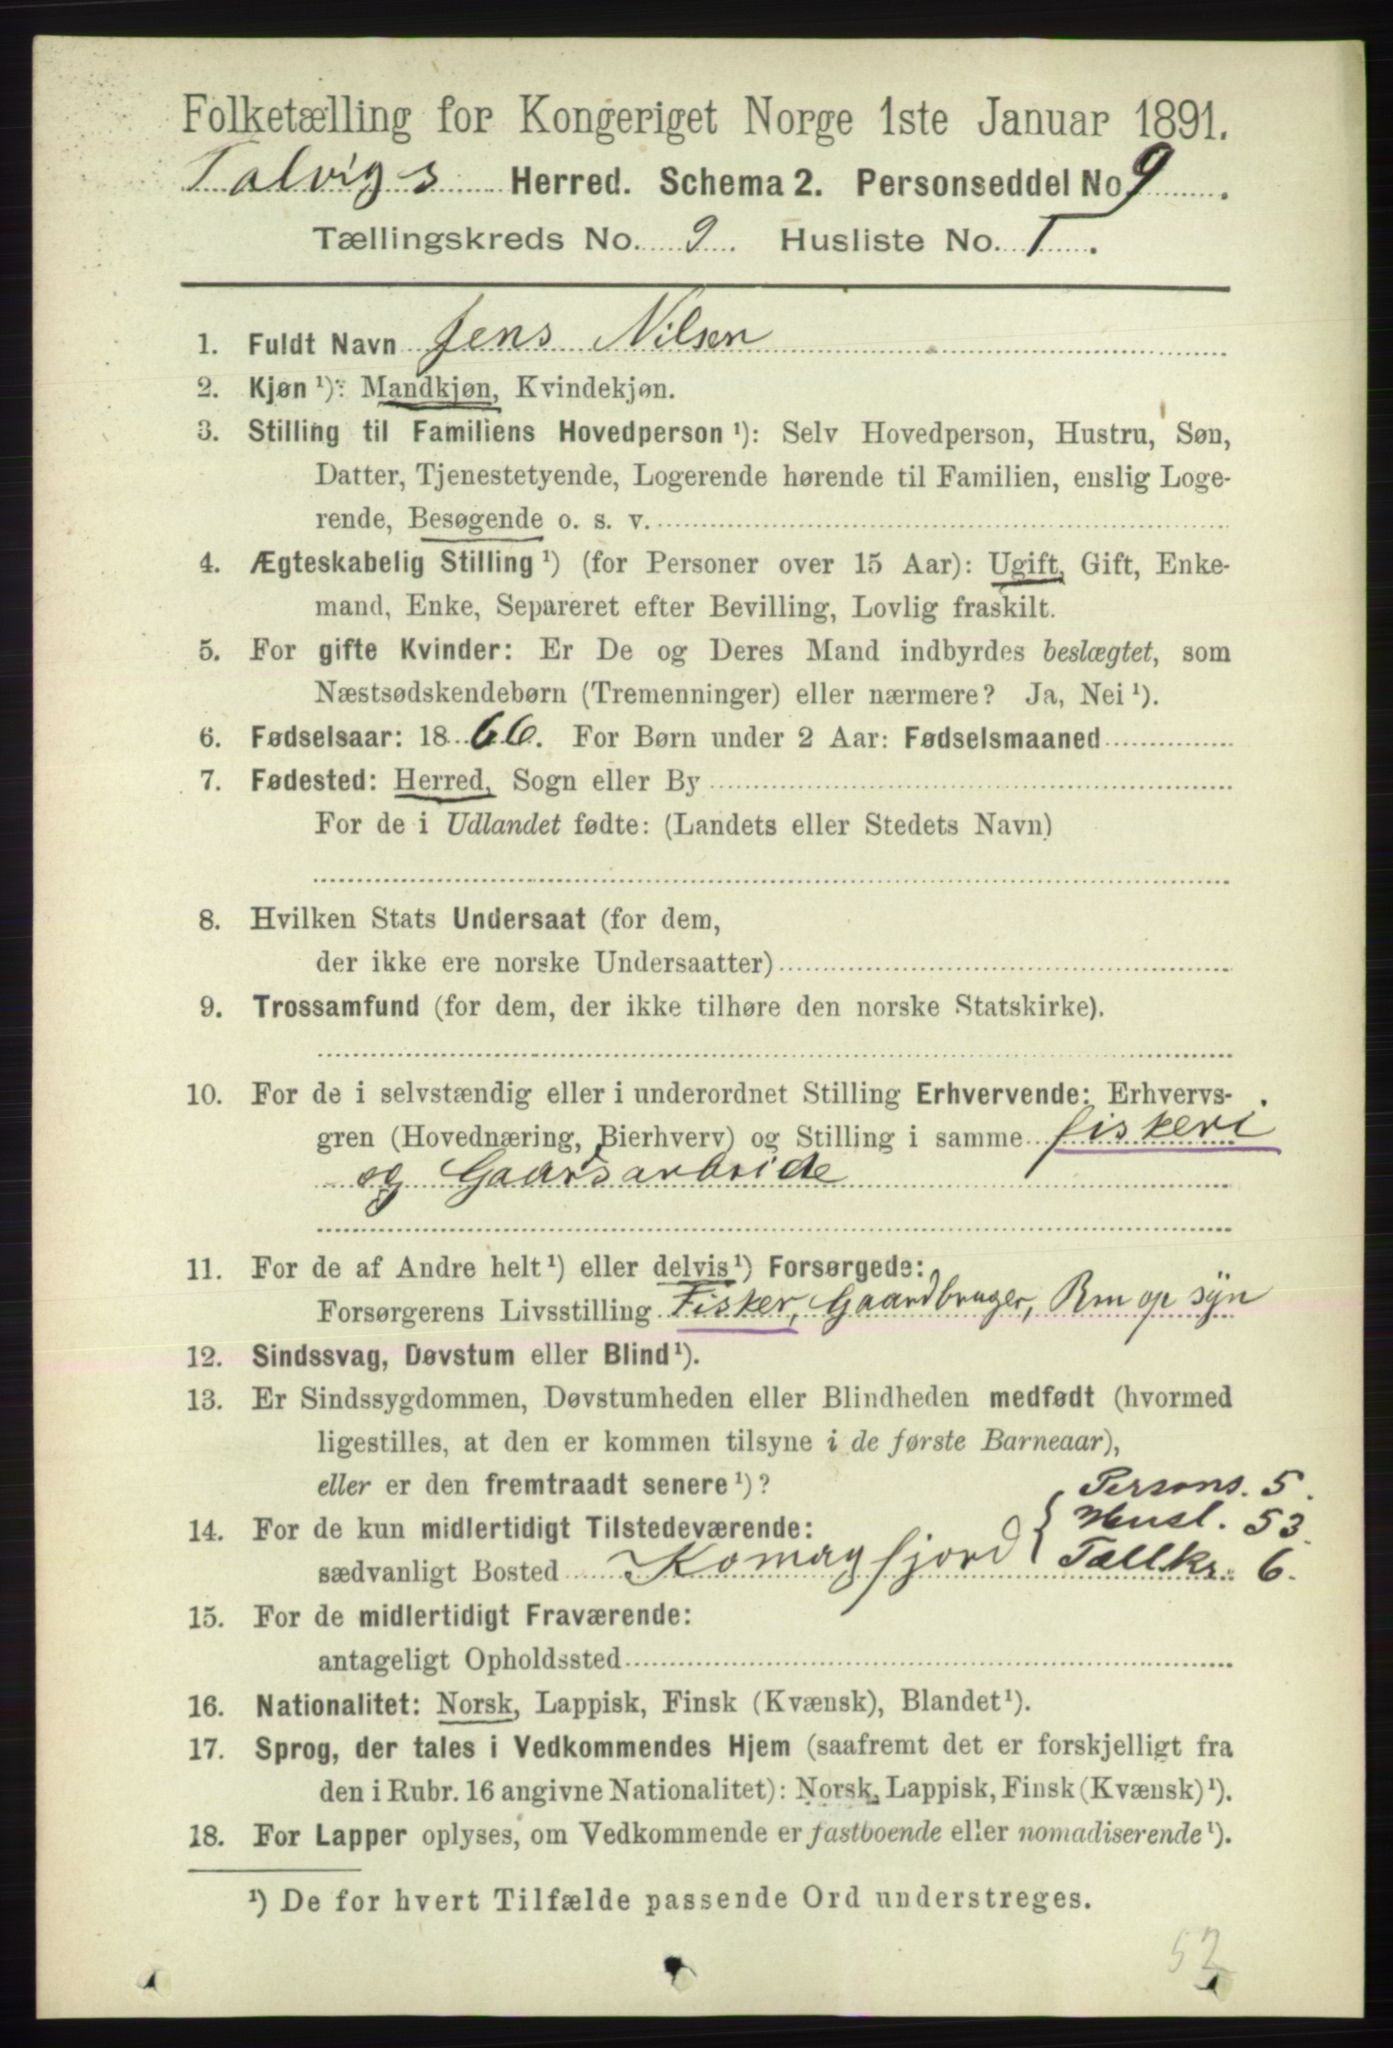 Folketælling for Kongeriget Norge 1ste Januar 1891.
Talvigs Herred. Schema 2. Personseddel No 9.
Tællingskreds No. 9. Husliste No. 1.
1. Fuldt Navn Jens Nilsen
2. Kjøn ¹): Mandkjøn, Kvindekjøn.
3. Stilling til Familiens Hovedperson ¹): Selv Hovedperson, Hustru, Søn,
Datter, Tjenestetyende, Logerende hørende til Familien, enslig Loge-
rende, Besøgende o. s. v.
4. Ægteskabelig Stilling ¹) (for Personer over 15 Aar): Ugift, Gift, Enke-
mand, Enke, Separeret efter Bevilling, Lovlig fraskilt.
5. For gifte Kvinder: Er De og Deres Mand indbyrdes beslægtet, som
Næstsødskendebørn (Tremenninger) eller nærmere? Ja, Nei ¹).
6. Fødselsaar: 1866. For Børn under 2 Aar: Fødselsmaaned
7. Fødested: Herred, Sogn eller By
For de i Udlandet fødte: (Landets eller Stedets Navn)
8. Hvilken Stats Undersaat (for dem,
der ikke ere norske Undersaatter)
9. Trossamfund (for dem, der ikke tilhøre den norske Statskirke).
10. For de i selvstændig eller i underordnet Stilling Erhvervende: Erhvervs-
gren (Hovednæring, Bierhverv) og Stilling i samme fiskeri
og Gaardsarbeide
11. For de af Andre helt ¹) eller delvis ¹) Forsørgede:
Forsørgerens Livsstilling Fisker, Gaardbruger,
12. Sindssvag, Døvstum eller Blind ¹).
13. Er Sindssygdommen, Døvstumheden eller Blindheden medfødt (hvormed
ligestilles, at den er kommen tilsyne i de første Barneaar),
eller er den fremtraadt senere ¹)?
Persons. 5.
14. For de kun midlertidigt Tilstedeværende: Husl. 53.
sædvanligt Bosted Komagfjord { Tællkr. 6.
15. For de midlertidigt Fraværende:
antageligt Opholdssted
16. Nationalitet: Norsk, Lappisk, Finsk (Kvænsk), Blandet ¹).
17. Sprog, der tales i Vedkommendes Hjem (saafremt det er forskjelligt fra
den i Rubr. 16 angivne Nationalitet): Norsk, Lappisk, Finsk (Kvænsk) ¹).
18. For Lapper oplyses, om Vedkommende er fastboende eller nomadiserende ¹).
¹) De for hvert Tilfælde passende Ord understreges.
52